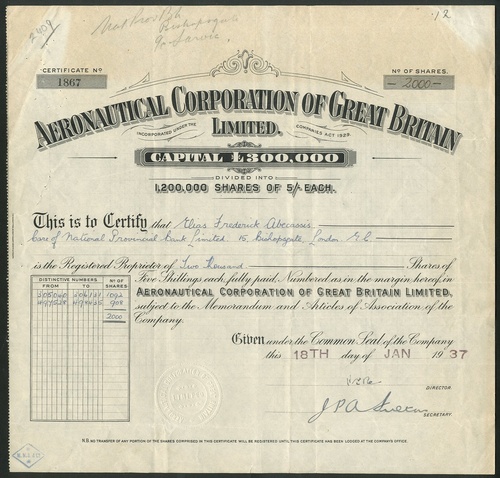 2409
12
Bishopsgate
CERTIFICATE Nº
1867
Nº OF SHARES.
- 2000 -
AERONAUTICAL CORPORATION OF GREAT BRITAIN
INCORPORATED UNDER THE
LIMITED.
COMPANIES ACT 1929.
CAPITAL £300,000
DIVIDED INTO
1,200,000 SHARES OF 5/- EACH.
This is to Certify that Elias Frederick Abecassis
care of National Provincial Bank Limited. 15, Bishopsgate, London E.C.
is the Registered Proprietor of Two thousand Shares of
Five Shillings each, fully paid, Numbered as in the margin hereof, in
AERONAUTICAL CORPORATION OF GREAT BRITAIN LIMITED,
subject to the Memorandum and Articles of Association of the
Company.
DISTINCTIVE NUMBERS
Nº OF
FROM TO SHARES
1092
908
2000
Given under the Common Seal of the Company
this 18TH day of JAN 1937
DIRECTOR.
SECRETARY.
N.B. NO TRANSFER OF ANY PORTION OF THE SHARES COMPRISED IN THIS CERTIFICATE WILL BE REGISTERED UNTIL THIS CERTIFICATE HAS BEEN LODGED AT THE COMPANY'S OFFICE.